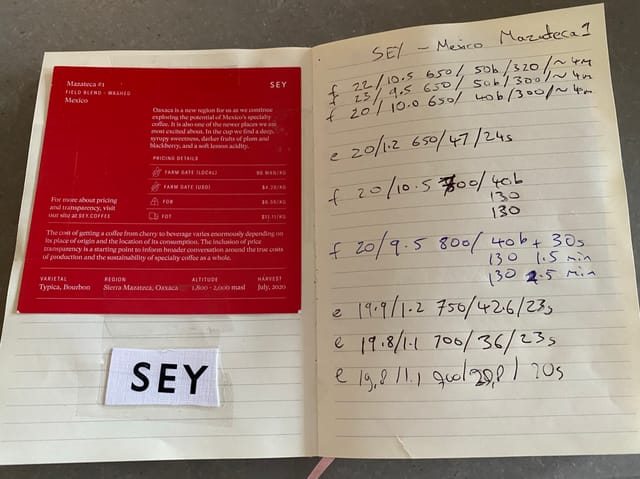 Mazateca #1
FIELD BLEND - WASHED
Mexico
SEY
Oaxaca is a new region for us as we continue
exploring the potential of Mexico's specialty
coffee. It is also one of the newer places we are
most excited about. In the cup we find a deep,
syrupy sweetness, darker fruits of plum and
blackberry, and a soft lemon acidity.
PRICING DETAILS
FARM GATE (LOCAL)
FARM GATE (USD)
FOB
FOT
For more about pricing
and transparency, visit
our site at SEY.COFFEE
The cost of getting a coffee from cherry to beverage varies enormously depending on
its place of origin and the location of its consumption. The inclusion of price
transparency is a starting point to inform broader conversation around the true costs
of production and the sustainability of specialty coffee as a whole.
VARIETAL REGION ALTITUDE HARVEST
Typica, Bourbon Sierra Mazateca, Oaxaca 1,800 - 2,000 masl July, 2020
SEY
SEY - Mexico Mazateca 1
f 22/10.5 650/ 50b/320/~4m
f 23/ 9.5 650/ 50b/300/~4m
f 20/10.0 650/ 40b/300/~4m
e 20/1.2 650/47/24s
f 20/10.5 800/40b
130
130
f 20/9.5 800/ 40b + 30s
130 1.5 min
130 2.5 min
e 19.9/1.2 750/42.6/23s
e 19.8/1.1 700/36/23s
e 19,8/1.1